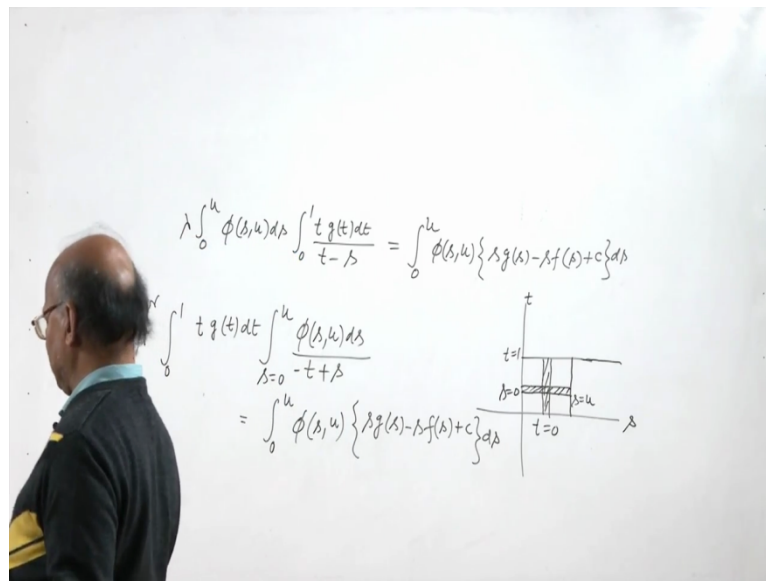 λ∫₀ᵘ ϕ(s,u)ds ∫₀¹ t g(t)dt / t-s = ∫₀ᵘ ϕ(s,u){sg(s)-sf(s)+c}ds
∫₀¹ t g(t)dt ∫ₛ₌₀ᵘ ϕ(s,u)ds / -t+s
= ∫₀ᵘ ϕ(s,u){sg(s)-sf(s)+c}ds
t
t=1
s=0
s=u
t=0
s